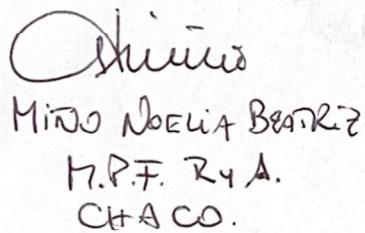 MIÑO NOELIA BEATRIZ
M.P.F. R y A.
CHACO.